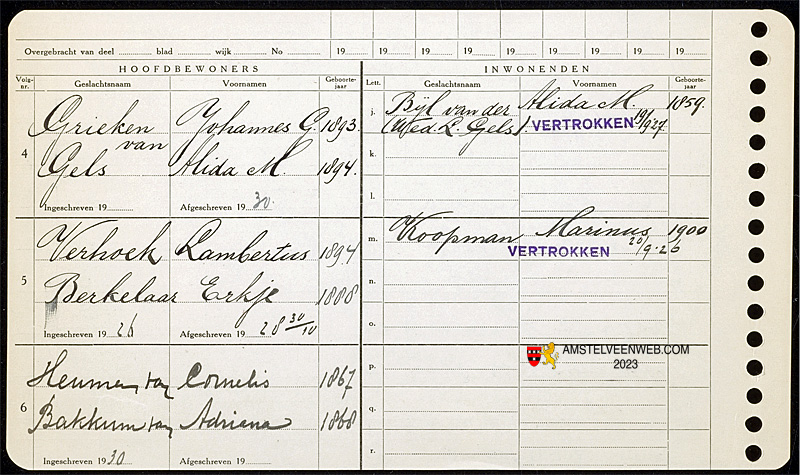 Overgebracht van deel blad wijk No 19 19 19 19 19 19 19 19 19
HOOFDBEWONERS
INWONENDEN
Volg-nr. Geslachtsnaam Voornamen Geboorte-jaar
Lett. Geslachtsnaam Voornamen Geboorte-jaar
4
Grieken van Johannes G. 1893.
Gels Alida M. 1894.
Ingeschreven 19 Afgeschreven 19 30.
j. Bijl van der Alida M. 1859.
(Wed. L. Gels) VERTROKKEN 19/1 1927.
k.
l.
5
Verhoek Lambertus 1894
Berkelaar Erkje 1888
Ingeschreven 19 26 Afgeschreven 19 28 30/10
m. Koopman Marinus 1900
VERTROKKEN 20/9-26
n.
o.
6
Heumen van Cornelis 1867
Bakkum van Adriana 1868
Ingeschreven 19 30 Afgeschreven 19
p.
q.
r.
AMSTELVEENWEB.COM
2023